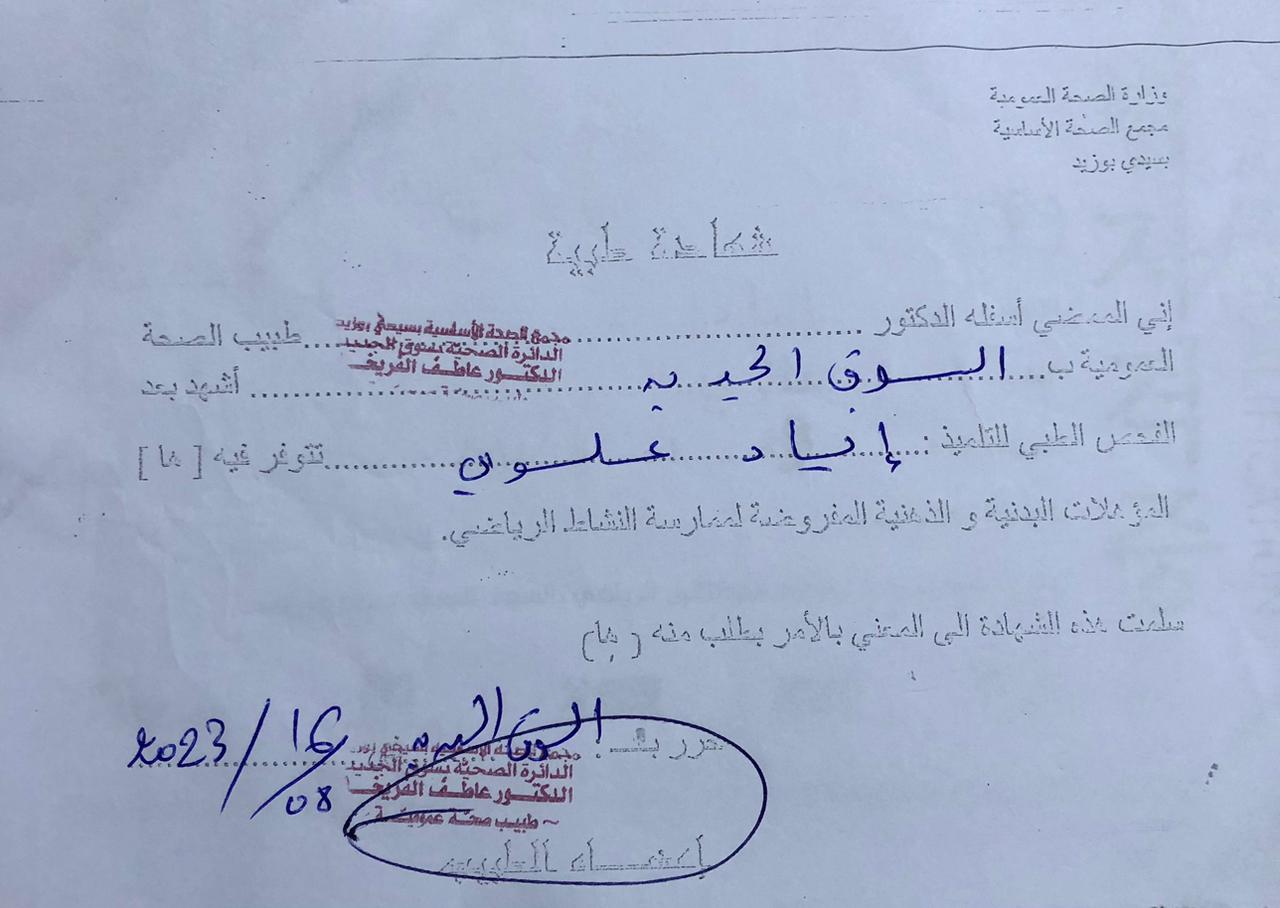 وزارة الصحة العمومية
مجمع الصحة الأساسية
بسيدي بوزيد
شهادة طبية
إني الممضي أسفله الدكتور ........................................ طبيب الصحة
مجمع الصحة الأساسية بسيدي بوزيد
الدائرة الصحية بسوق الجديد
الدكتور عاطف الفريخـ
العمومية ب.... السوق الجديد .................... أشهد بعد
الفحص الطبي للتلميذ : إياد علوي .................... تتوفر فيه [ ها ]
المؤهلات البدنية و الذهنية المفروضة لممارسة النشاط الرياضي.
سلمت هذه الشهادة الى المعني بالأمر بطلب منه ( ها )
حرر بـ : السوق الجديد 16/08/2023
مجمع الصحة الأساسية بسيدي بوز
الدائرة الصحية بسوق الجديد
الدكتور عاطف الفريخـ
~ طبيب صحة عمومية ~
إمضاء الطبيب